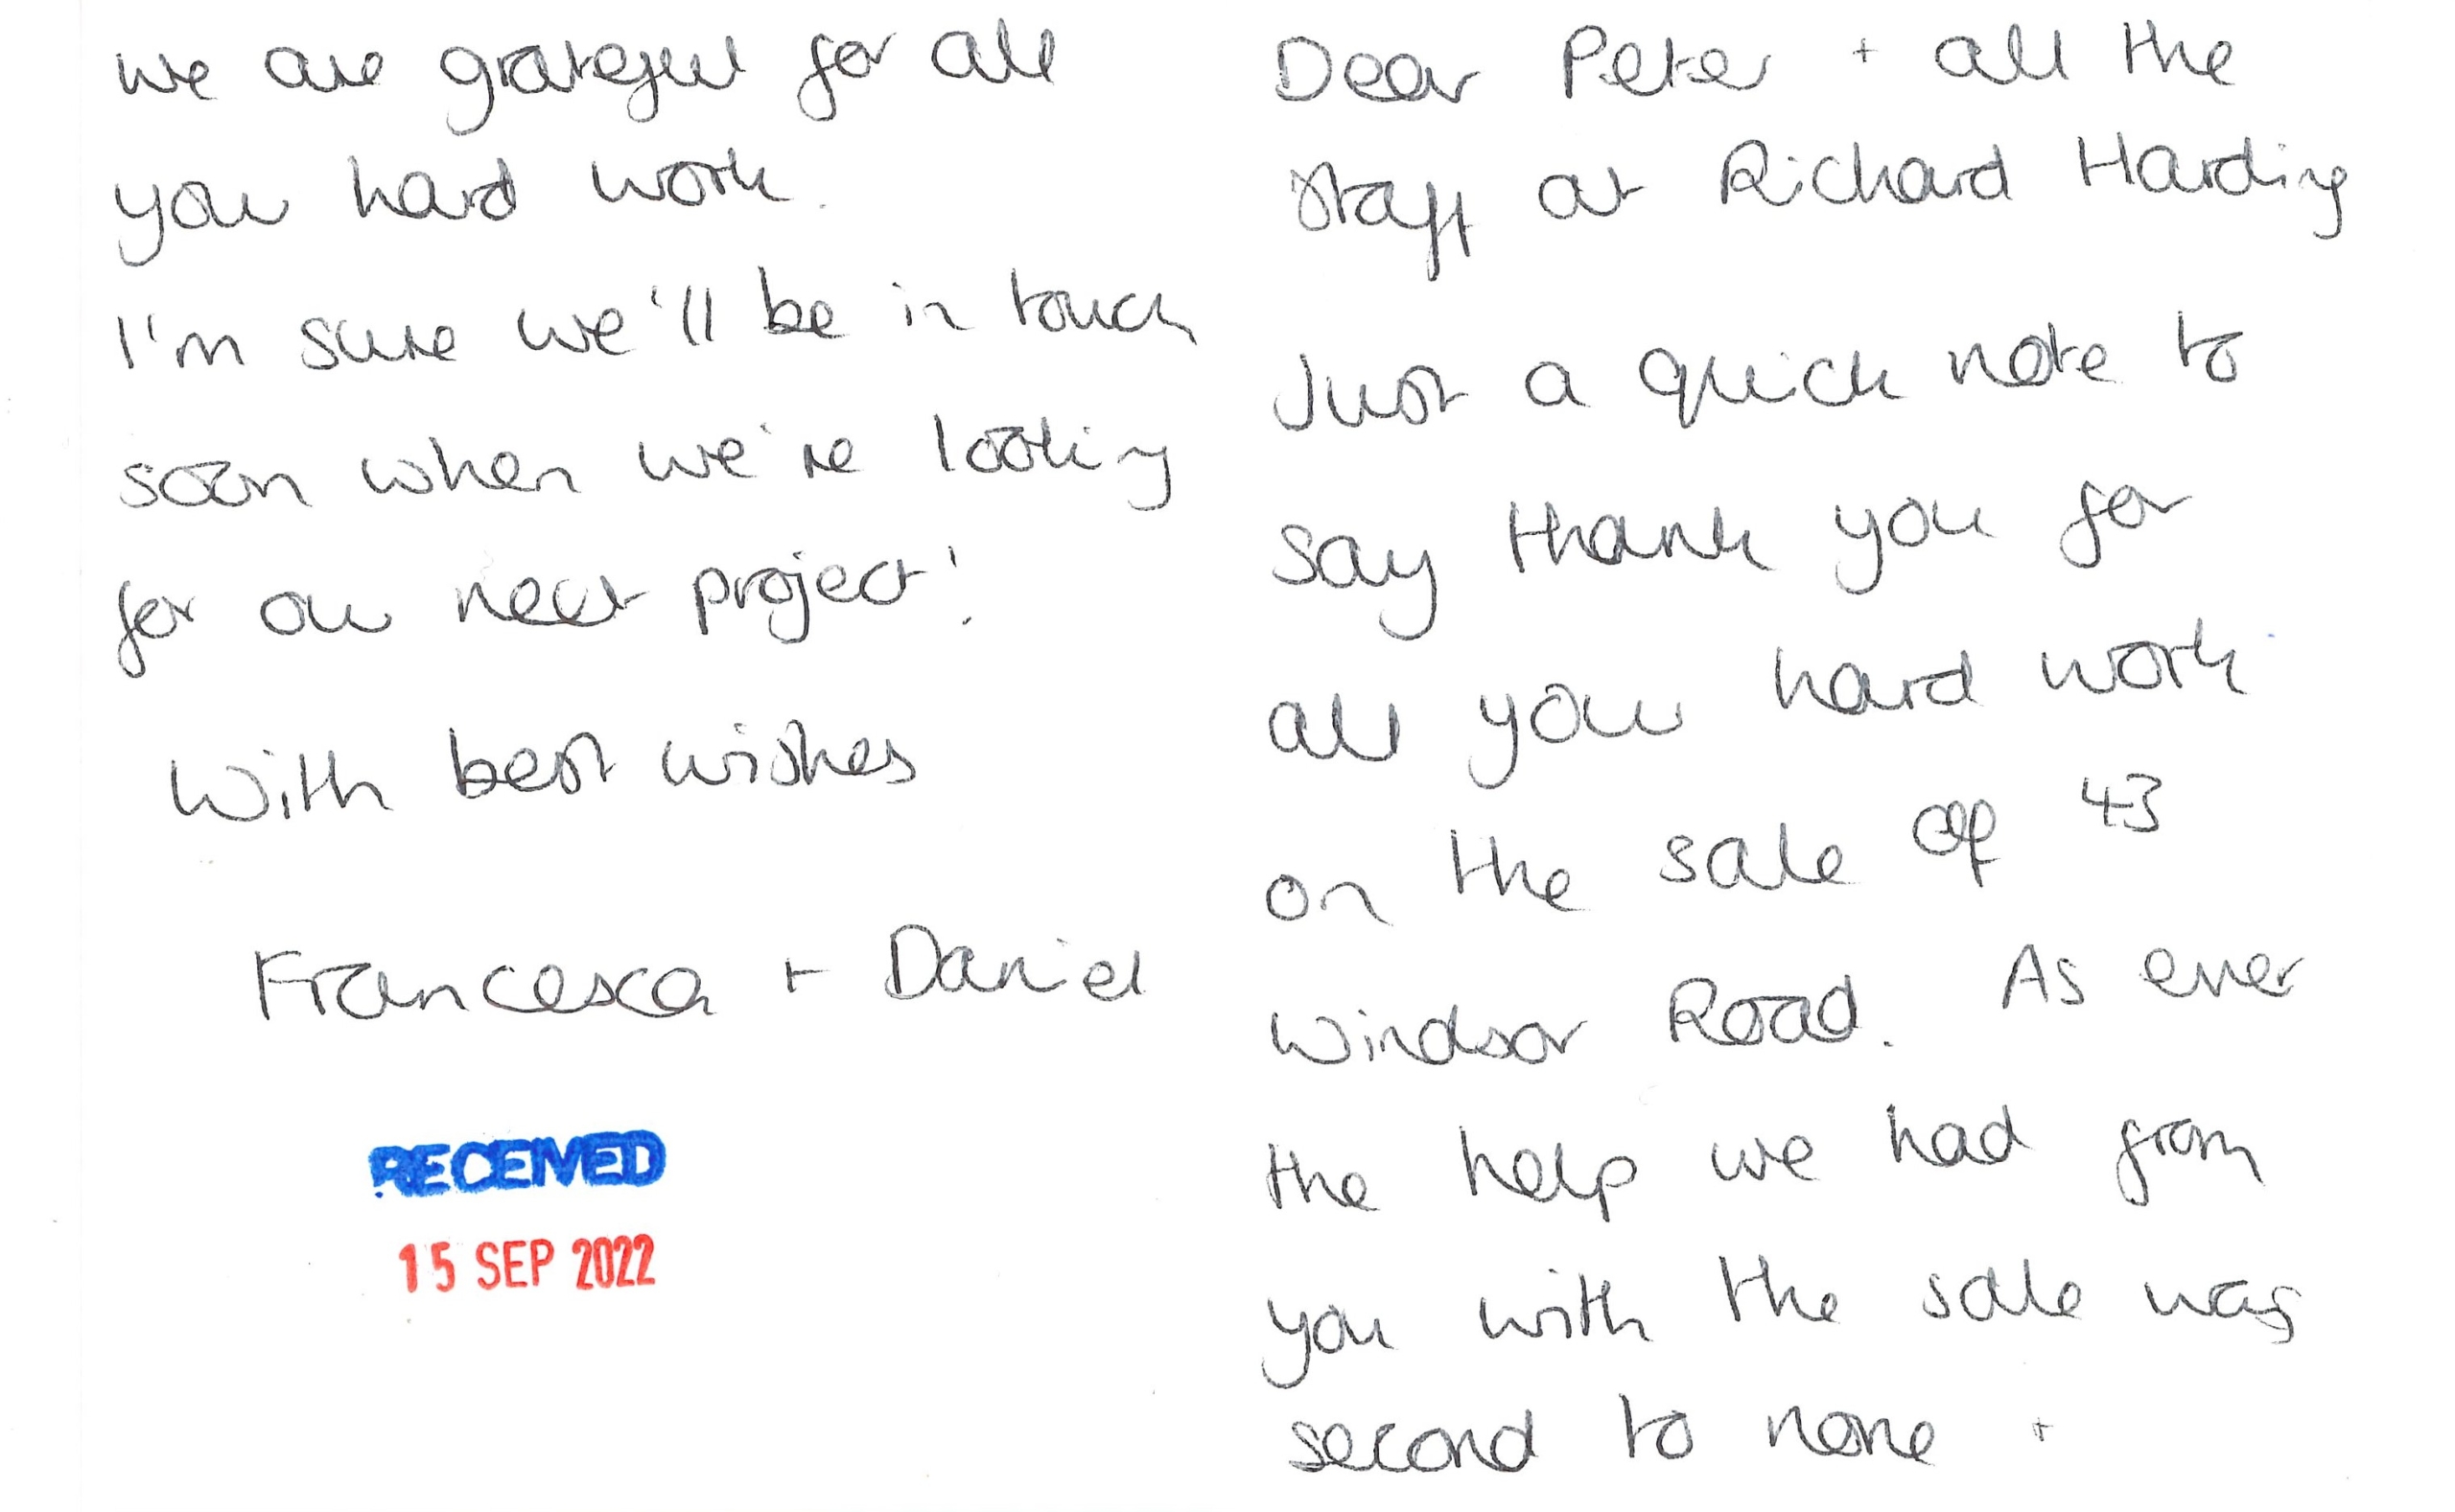 Dear Peter + all the
staff at Richard Harding
Just a quick note to
say thank you for
all your hard work
on the sale of 43
Windsor Road. As ever
the help we had from
you with the sale was
second to none +
we are grateful for all
your hard work.
I'm sure we'll be in touch
soon when we're looking
for our next project!
With best wishes
Francesca + Daniel
RECEIVED
15 SEP 2022